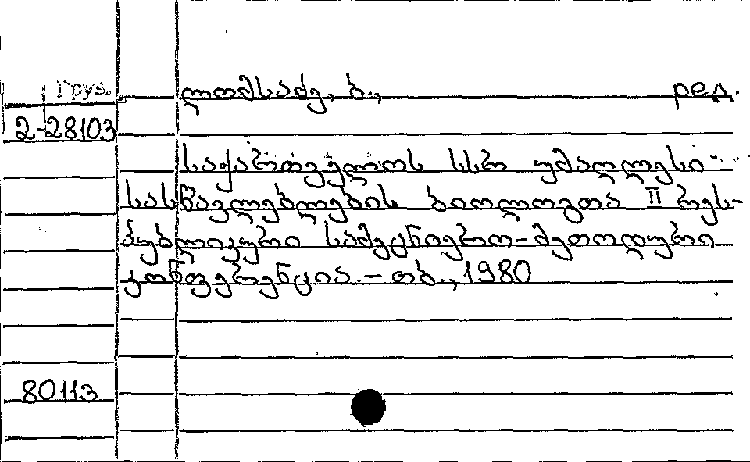 Груз. ლომსაძე, ბ., ред.
2-28103
საქართველოს სსრ უმაღლესი
სასწავლებლების ბიოლოგთა II რეს-
პუბლიკური სამეცნიერო-მეთოდური
კონფერენცია. - თბ., 1980
80113